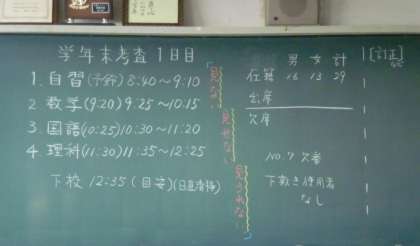 学年末考査1日目
1. 自習(予鈴) 8:40〜9:10
2. 数学(9:20) 9:25〜10:15
3. 国語(10:25) 10:30〜11:20
4. 理科(11:30) 11:35〜12:25
下校 12:35 (目安)(日直清掃)
「見ない
見せない
見うれない」
男 女 計
在籍 16 13 29
出席
欠席
No.7 欠番
下敷き使用者
なし
[訂正]